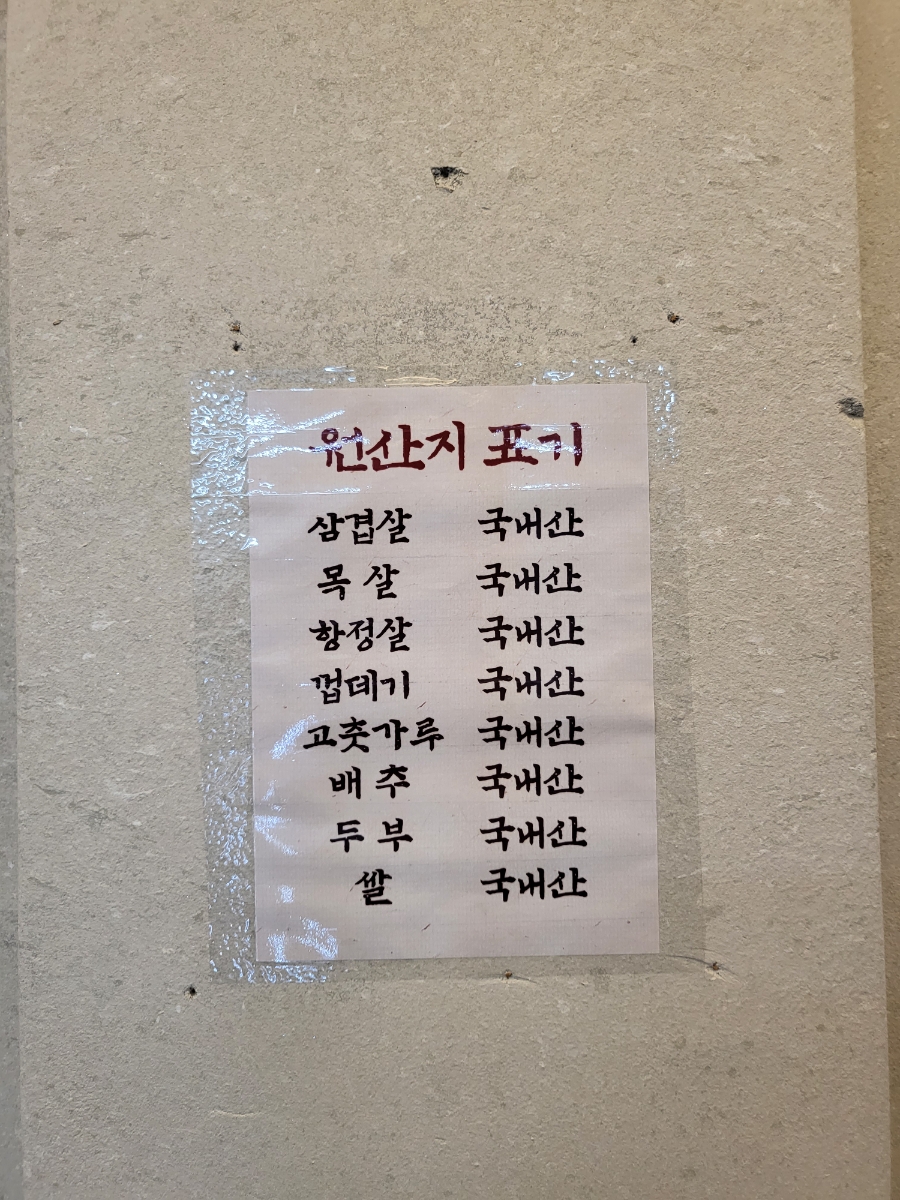 원산지 표기
삼겹살 국내산
목살 국내산
항정살 국내산
껍데기 국내산
고춧가루 국내산
배추 국내산
두부 국내산
쌀 국내산